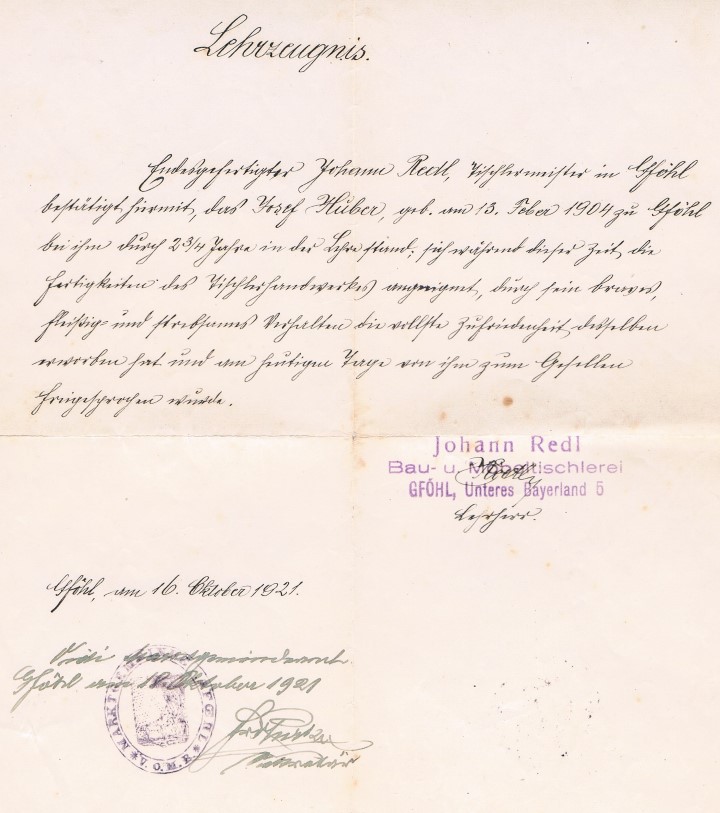 Lehrzeugnis.
Endesgefertigter Johann Redl, Tischlermeister in Gföhl
bestätigt hiermit, das Josef Huber, geb. am 13. Feber 1904 zu Gföhl
bei ihm durch 2 3/4 Jahre in der Lehre stand; sich während dieser Zeit die
Fertigkeiten des Tischlerhandwerkes angeeignet, durch sein braves,
fleißig- und strebsames Verhalten die vollste Zufriedenheit desselben
erworben hat und am heutigen Tage von ihm zum Gesellen
freigesprochen wurde.
Johann Redl
Bau- u. Möbeltischlerei
GFÖHL, Unteres Bayerland 5
Redl
Lehrherr.
Gföhl, am 16. Oktober 1921.
Vidi Marktgemeindeamt
Gföhl am 18. Oktober 1921
MARKT GFÖHL
V.O.M.B.
Sekretär